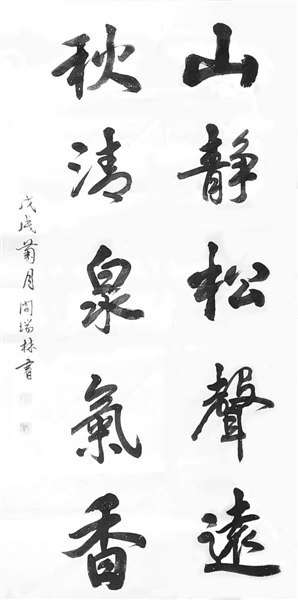 山靜松聲遠
秋清泉氣香
戊戌菊月周瑞林書